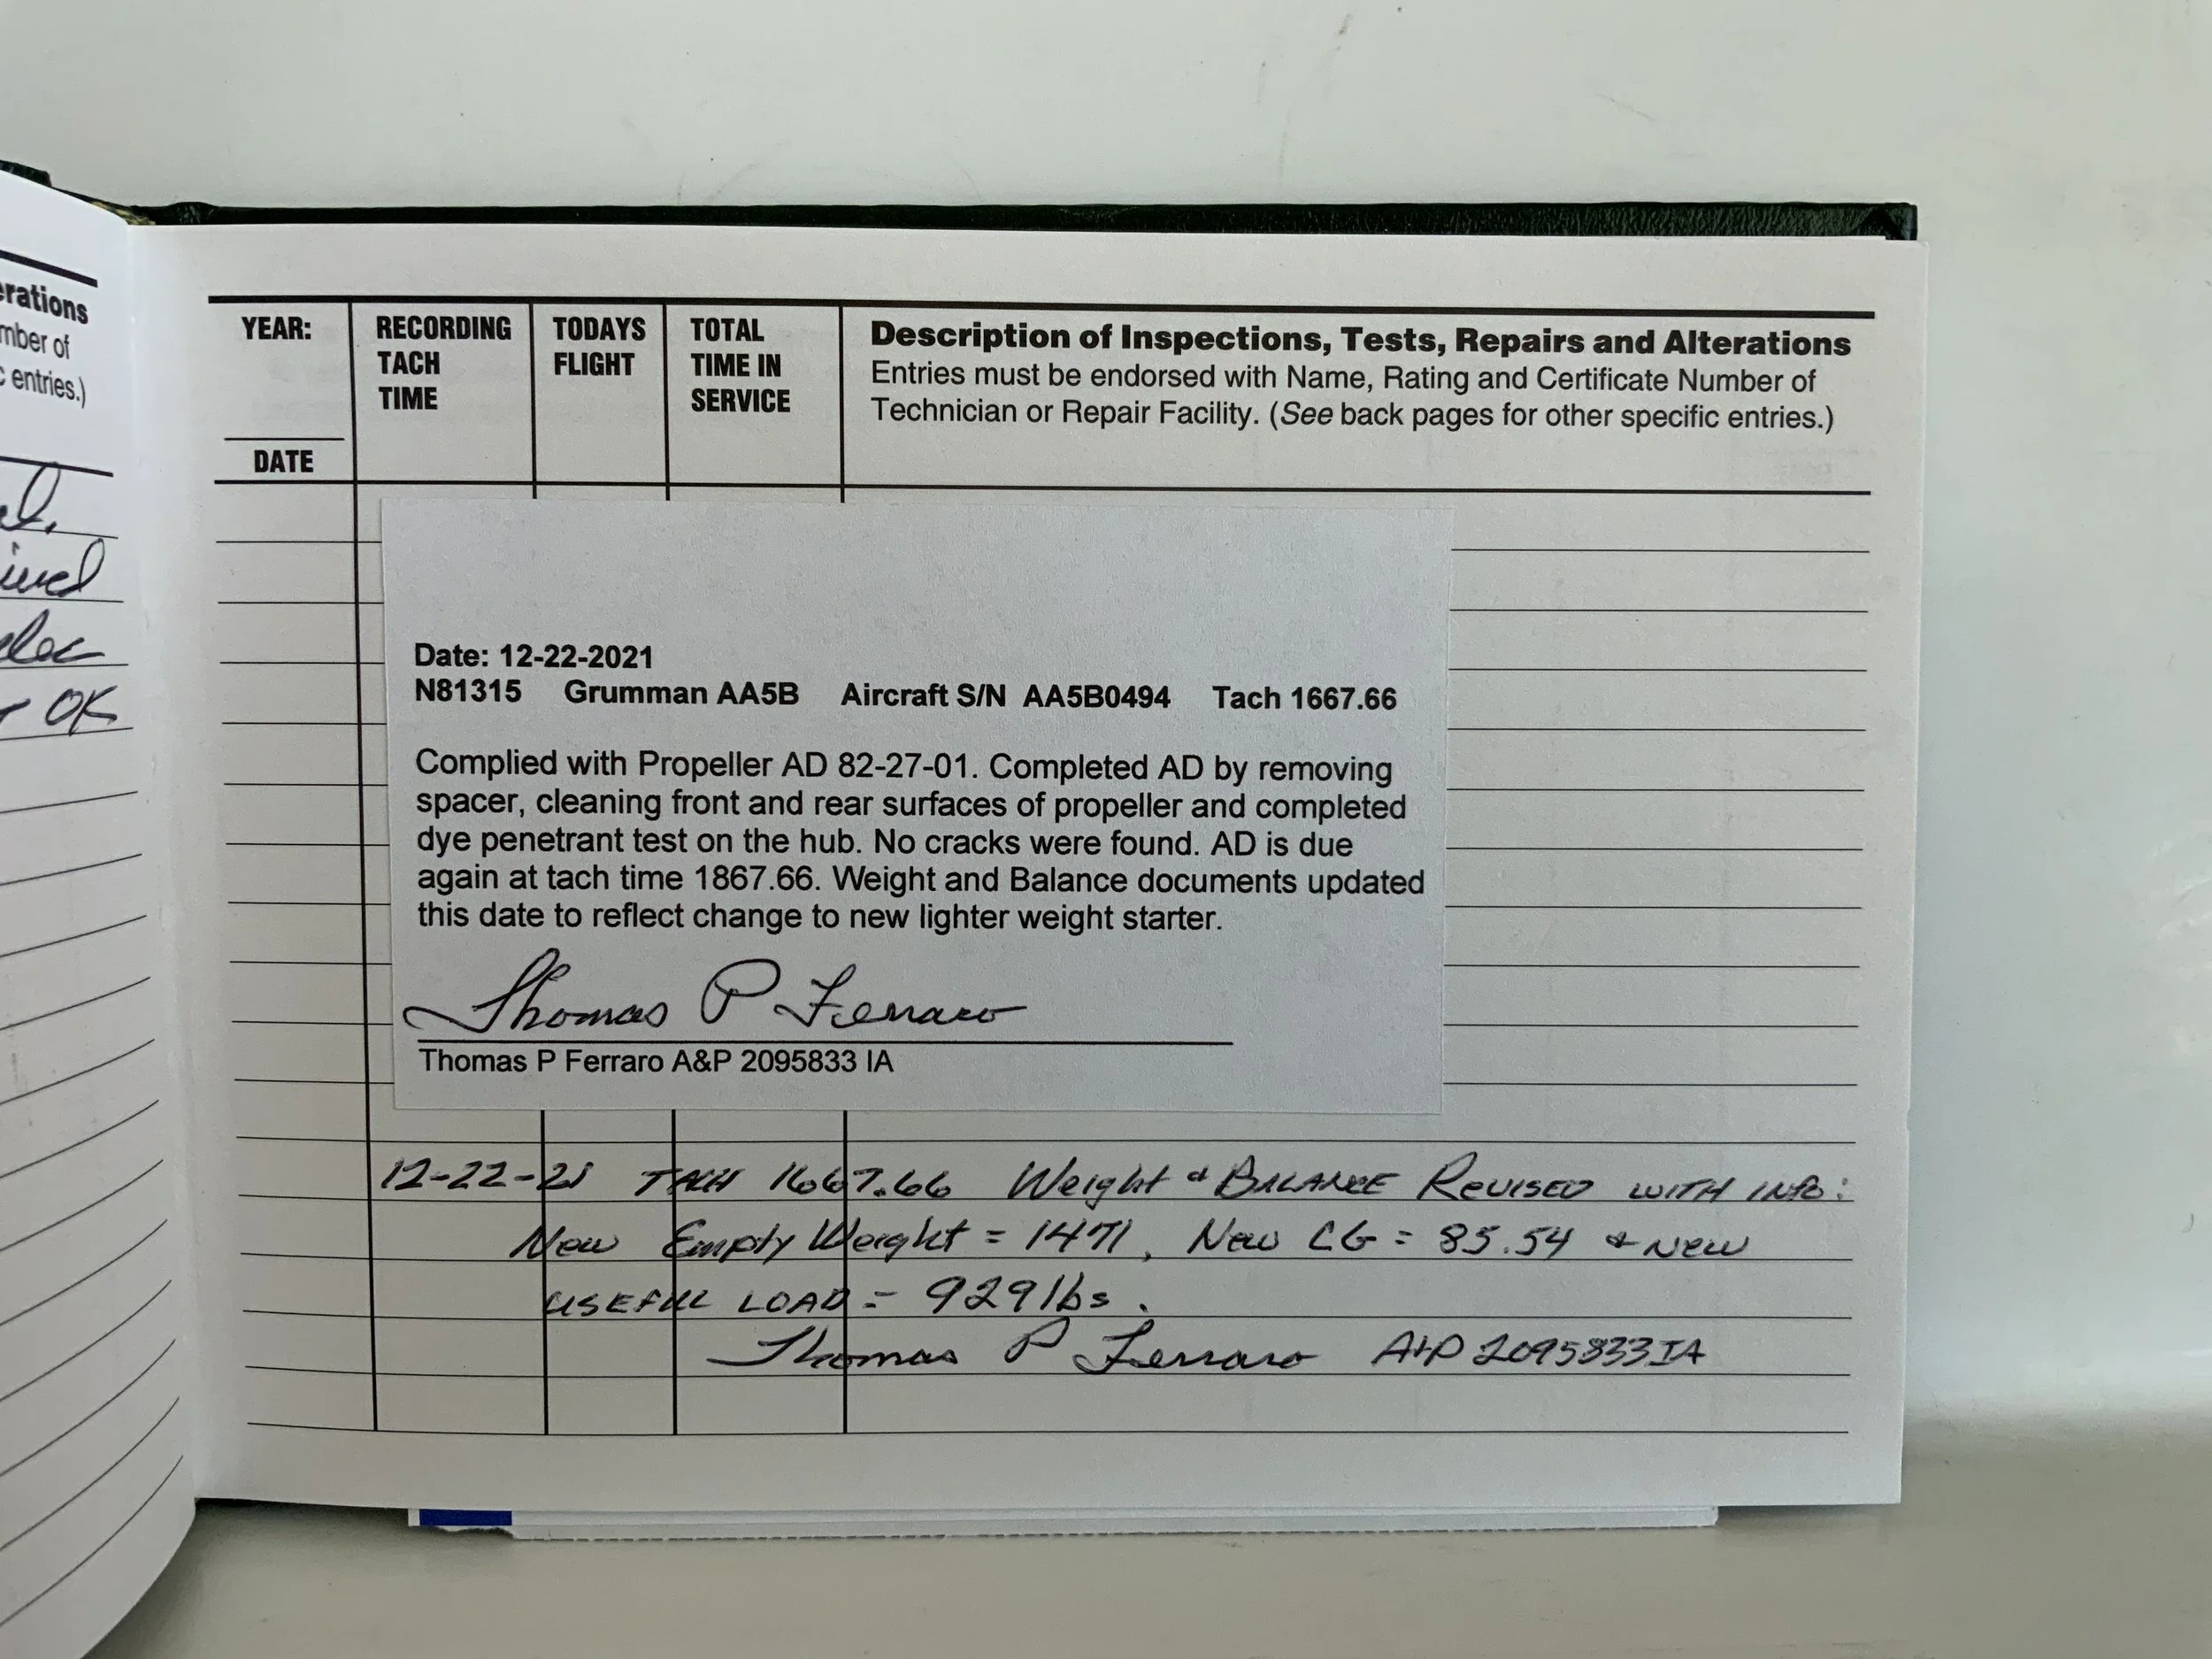 erations
mber of
c entries.)
OK
YEAR:
DATE
RECORDING
TACH
TIME
TODAYS
FLIGHT
TOTAL
TIME IN
SERVICE
Description of Inspections, Tests, Repairs and Alterations
Entries must be endorsed with Name, Rating and Certificate Number of
Technician or Repair Facility. (See back pages for other specific entries.)
Date: 12-22-2021
N81315 Grumman AA5B Aircraft S/N AA5B0494 Tach 1667.66
Complied with Propeller AD 82-27-01. Completed AD by removing
spacer, cleaning front and rear surfaces of propeller and completed
dye penetrant test on the hub. No cracks were found. AD is due
again at tach time 1867.66. Weight and Balance documents updated
this date to reflect change to new lighter weight starter.
Thomas P Ferraro
Thomas P Ferraro A&P 2095833 IA
12-22-21 TACH 1667.66 Weight & BALANCE REVISED WITH INFO:
New Empty Weight = 1471, New CG = 85.54 & NEW
USEFUL LOAD = 929 lbs.
Thomas P Ferraro A&P 2095833 IA